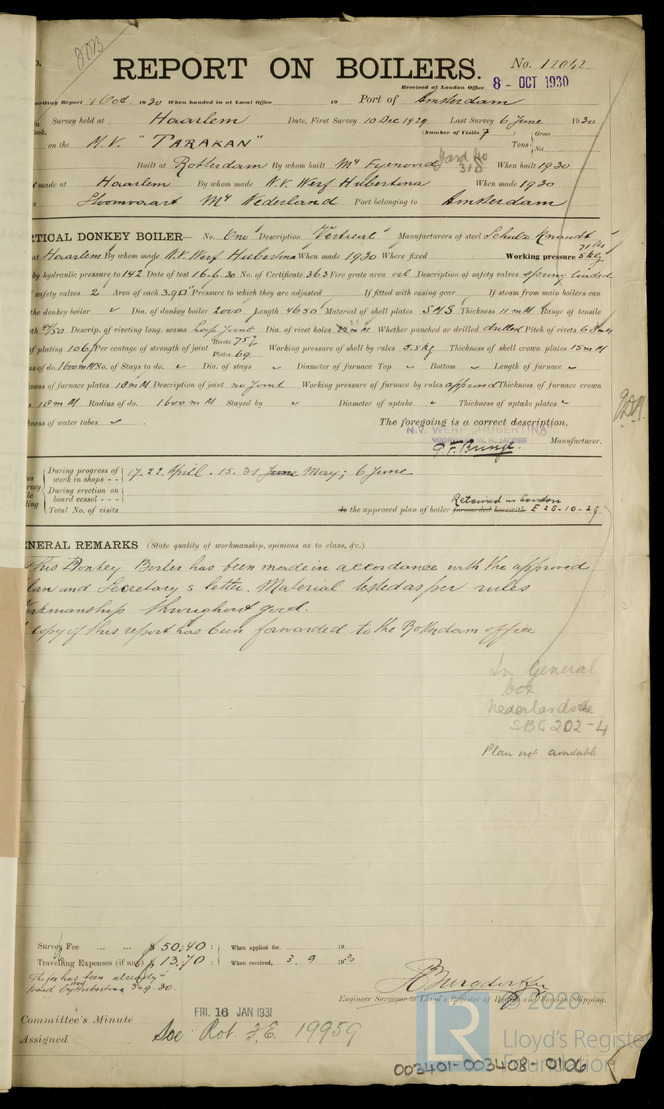 REPORT ON BOILERS.
No. 12042
Received at London Office 8 - OCT 1930
writing Report 1 Oct. 1930 When handed in at Local Office 19 Port of Amsterdam
Survey held at Haarlem Date, First Survey 10 Dec 1929 Last Survey 6 June 1930
(Number of Visits 7
on the M.V. "TARAKAN" Tons Gross Net
Yard No 318
Built at Rotterdam By whom built Mij Fijenoord When built 1930
made at Haarlem By whom made N.V. Werf Hubertina When made 1930
Stoomvaart Mij Nederland Port belonging to Amsterdam
RTICAL DONKEY BOILER— No. One Description Vertical Manufacturers of steel Schulz Knaudt
at Haarlem By whom made N.V. Werf Hubertina When made 1930 Where fixed Working pressure 5 kg 71 lbs
by hydraulic pressure to 142 Date of test 16.6.30 No. of Certificate 363 Fire grate area oil Description of safety valves spring loaded
safety valves 2 Area of each 3.9□" Pressure to which they are adjusted If fitted with easing gear If steam from main boilers can
the donkey boiler Dia. of donkey boiler 2000 Length 4650 Material of shell plates SMS Thickness 11 m/m Range of tensile
Descrip. of riveting long. seams lap joint Dia. of rivet holes Whether punched or drilled drilled Pitch of rivets
of plating 106 Per centage of strength of joint Rivets 75.2 Plates 69. Working pressure of shell by rules 5.5 kg Thickness of shell crown plates 15 m/M
us of do. 1600 m/M No. of Stays to do. Dia. of stays Diameter of furnace Top Bottom Length of furnace
ness of furnace plates 18 m/M Description of joint no joint Working pressure of furnace by rules approved Thickness of furnace crown
18 m/M Radius of do. 1600 m/M Stayed by Diameter of uptake Thickness of uptake plates
kness of water tubes The foregoing is a correct description,
N.V. WERF "HUBERTINA"
Manufacturer.
During progress of work in shops - - 17. 22. April. 15. 21 June May; 6 June
During erection on board vessel - - -
Total No. of visits Is the approved plan of boiler forwarded herewith Retained in London E 25-10-29
NERAL REMARKS (State quality of workmanship, opinions as to class, &c.)
This Donkey Boiler has been made in accordance with the approved
plan and Secretary's letter. Material tested as per rules
workmanship throughout good.
copy of this report has been forwarded to the Rotterdam office
In General
box
Nederlandsche
SBG 202-4
Plan not available
Survey Fee ... ... ƒ 50.40 : When applied for, 19
Travelling Expenses (if any) ƒ 13.70 : When received, 3. 9. 1930
The fee has been already
paid by Hubertina 3-9.30.
Engineer Surveyor to Lloyd's Register of British and Foreign Shipping.
Committee's Minute FRI. 16 JAN 1931
Assigned See Rot. F.E. 19959
© 2020
LR
Lloyd's Register
Foundation
003401-003408-0106